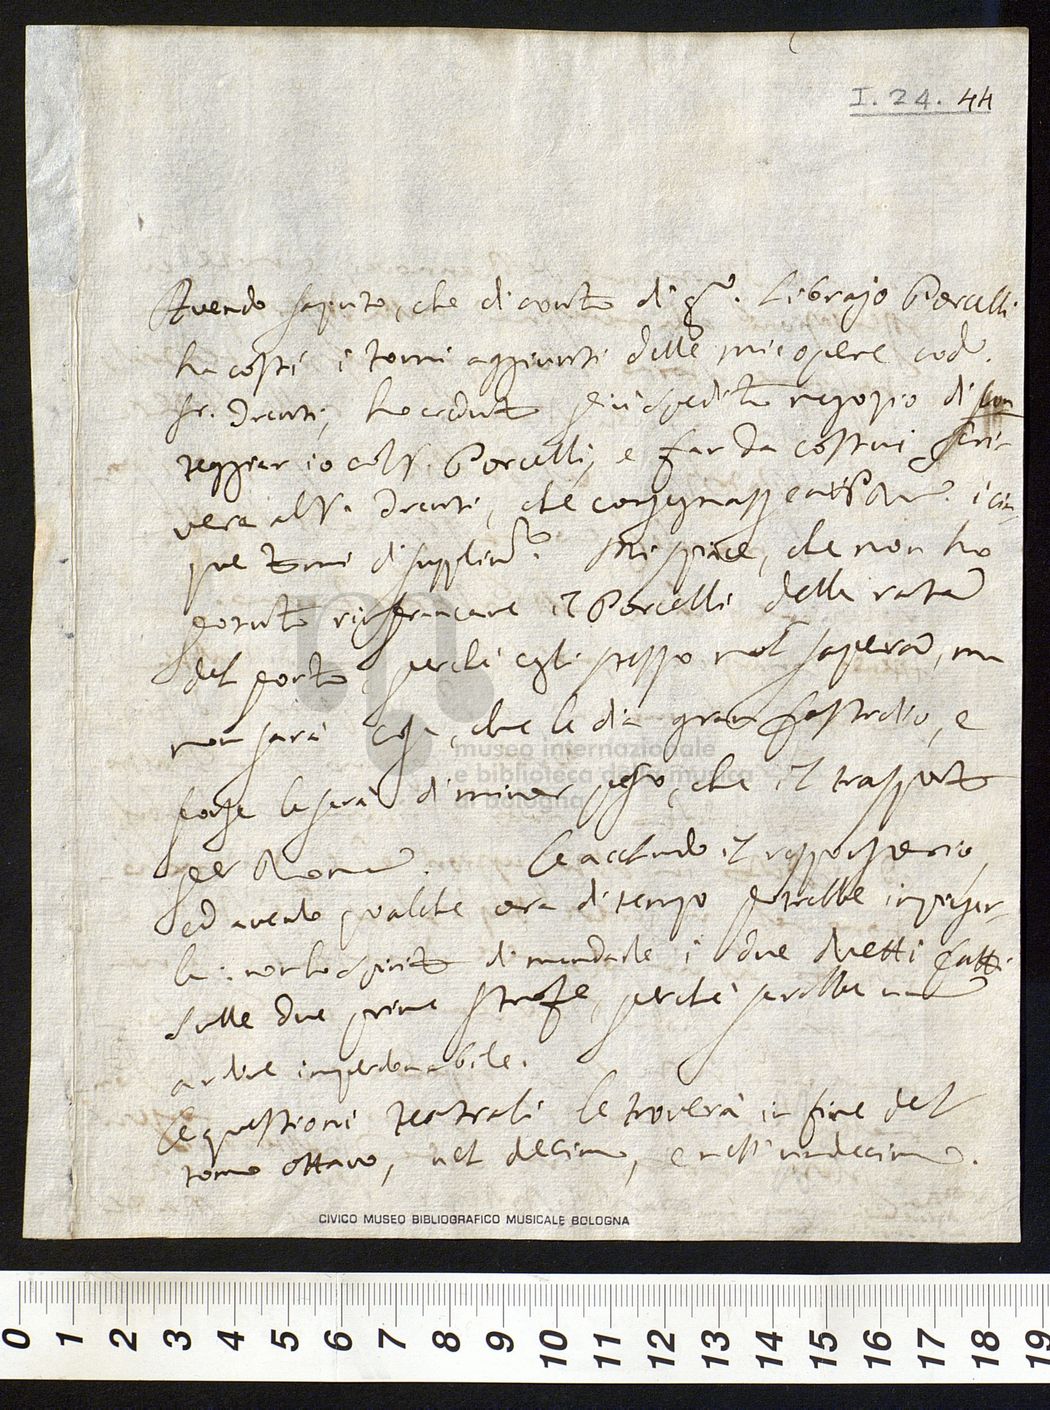 I. 24. 44
Avendo saputo, che di conto di q.to Librajo Porcelli
ha costì i tomi aggiunti delle mie opere cod.o
Sr. Drenti, ho creduto più spedito negozio di con
teggiar io col Sr. Porcelli, e far da costui scri-
vere al Sr. Drenti, che consegnasse i cin-
que tomi di supplim.to. Mi spiace, che non ho
potuto rinfrancare il Porcelli della rata
del porto, perchè egli stesso nol sapeva, ma
non sarà cosa, che le dia gran fastidio, e
forse le sarà di minor peso, che il trasporto
per Roma. Le accludo il responsorio,
ed avendo qualche ora di tempo potrebbe impiegar-
la: non ho spirito di mandarle i due duetti fatti
sulle due prime strofe, perchè sarebbe un
ardire imperdonabile.
Le questioni teatrali le troverà in fine del
tomo ottavo, nel decimo, e nell'undecimo.
museo internazionale
e biblioteca della musica
di bologna
CIVICO MUSEO BIBLIOGRAFICO MUSICALE BOLOGNA
0 1 2 3 4 5 6 7 8 9 10 11 12 13 14 15 16 17 18 19